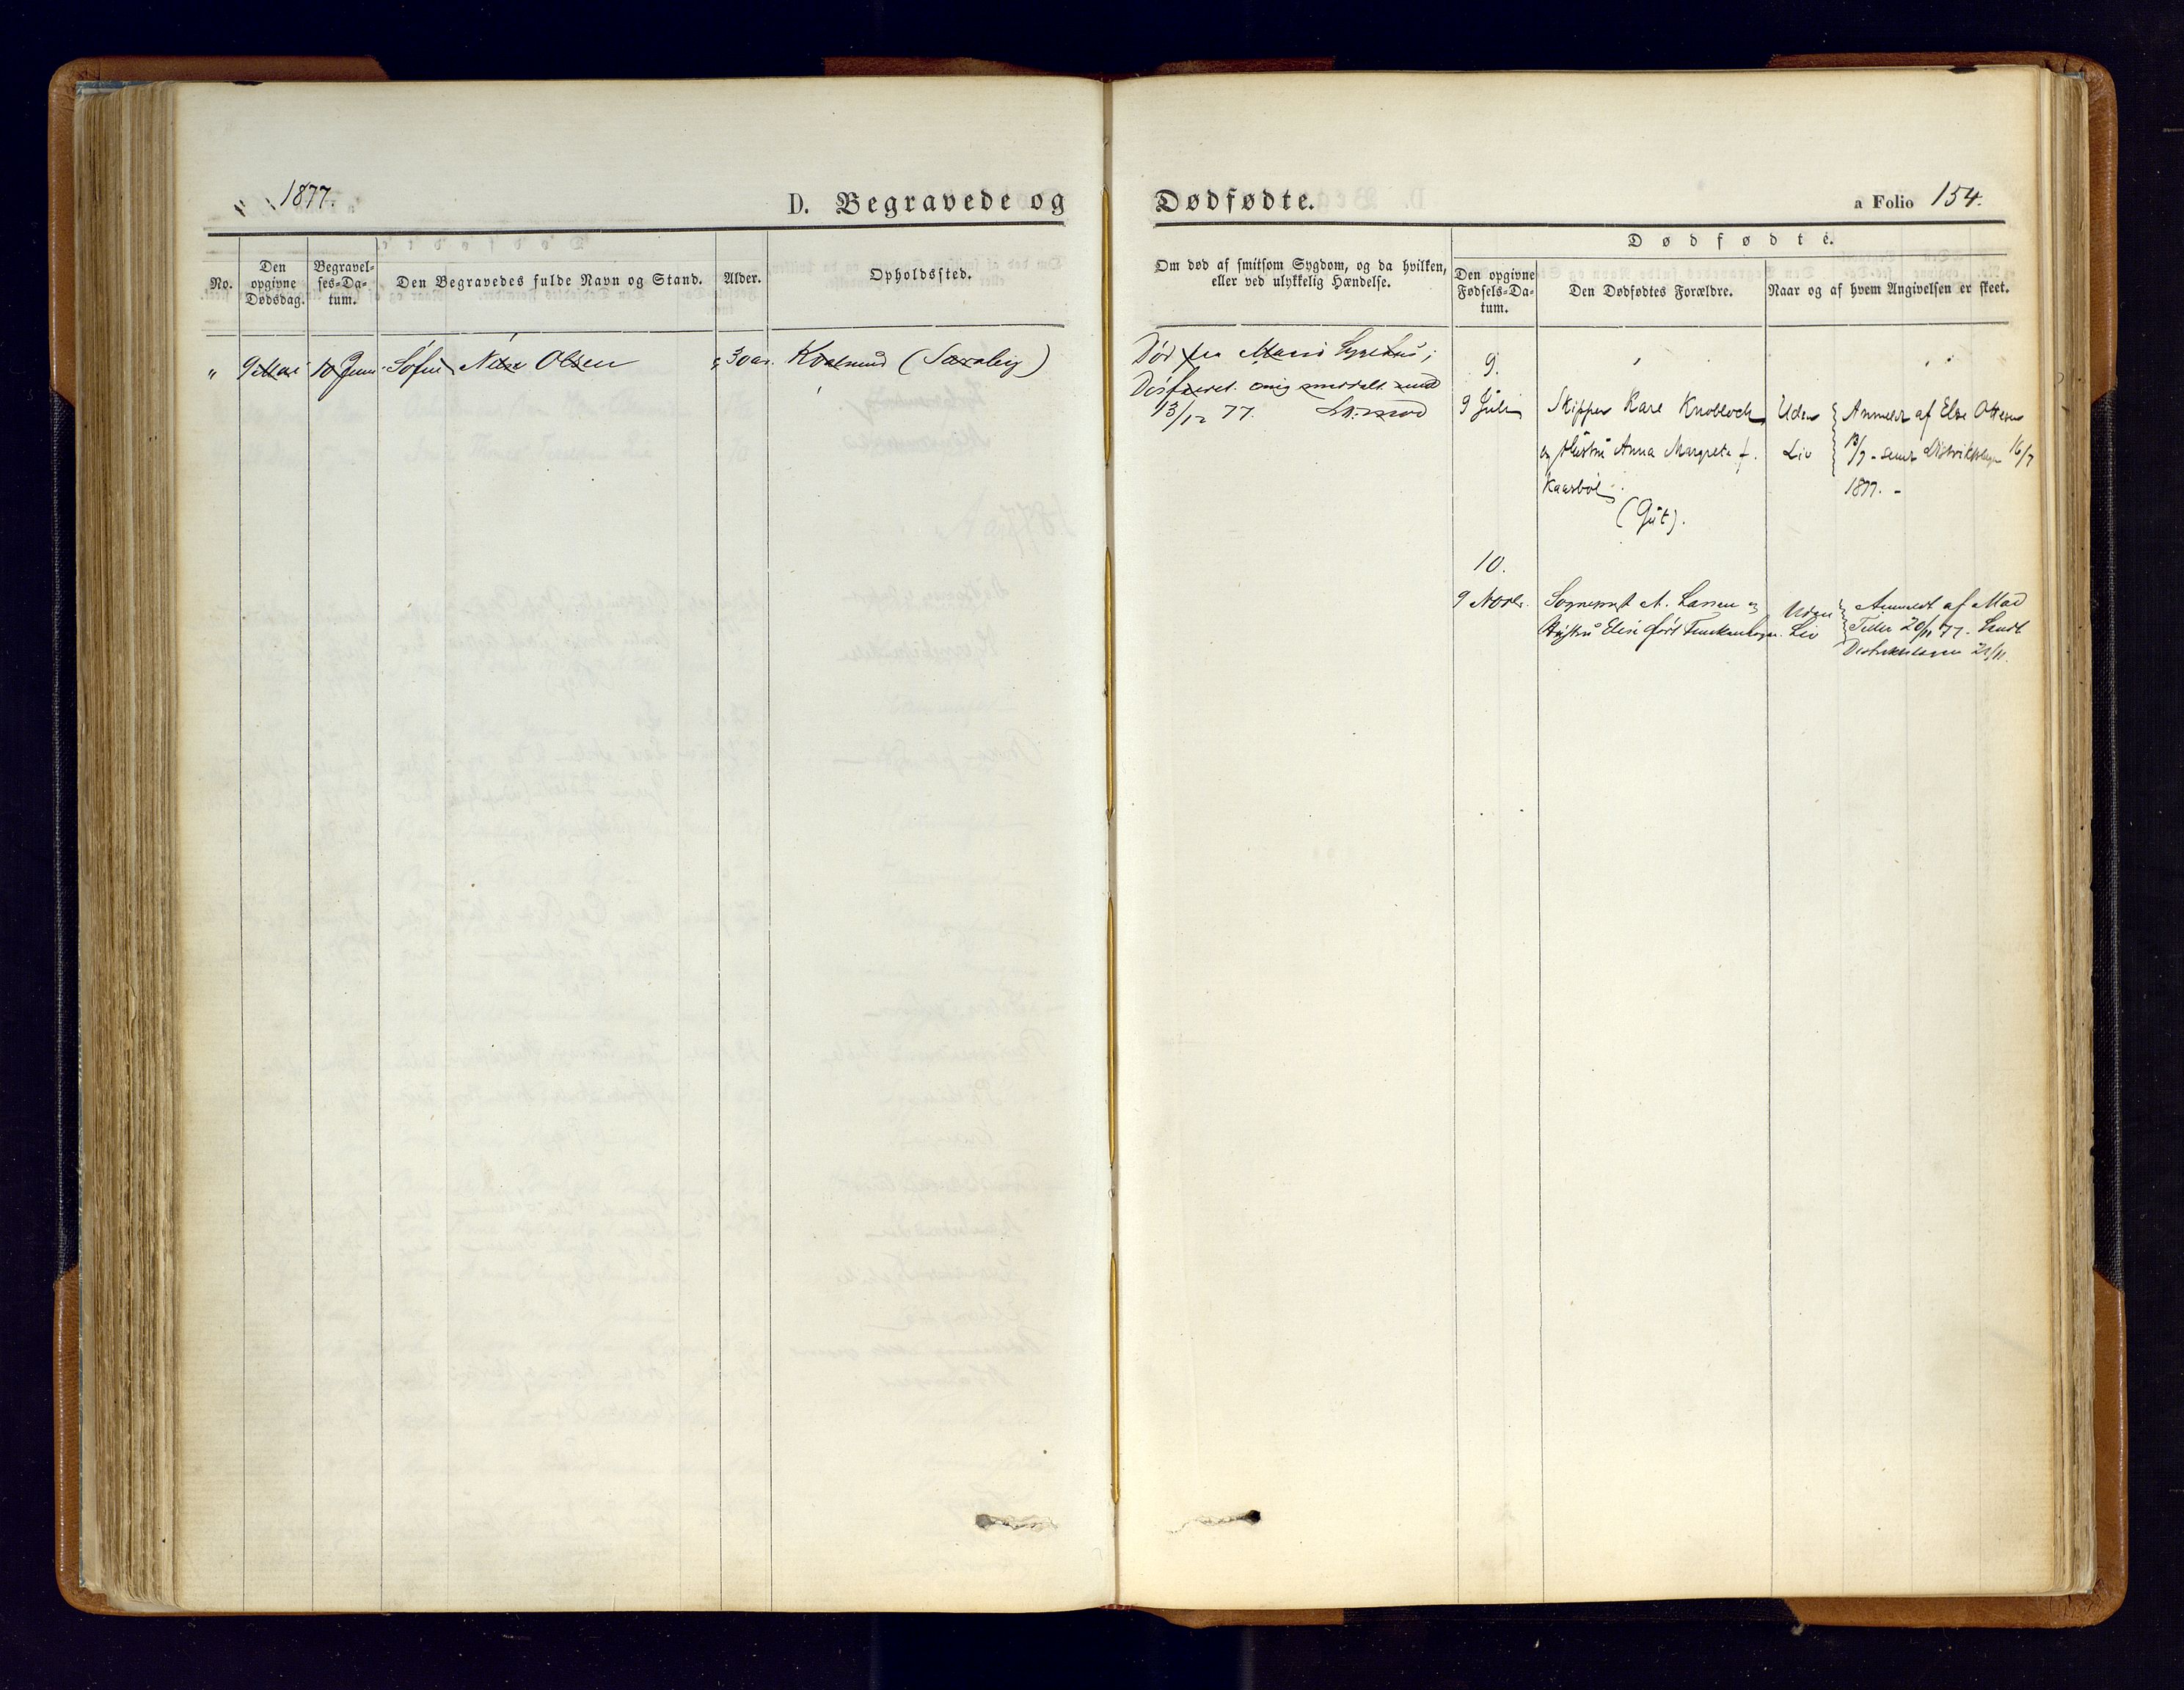 1877.
D. Begravede og
No.
Den opgivne Dødsdag.
Begravelses-Datum.
Den Begravedes fulde Navn og Stand.
Alder.
Opholdssted.
" 9 Mai 10 Juni Sofie Olsen 30 aar. Kvalsund
Dødfødte.
a Folio 154.
Om død af smitsom Sygdom, og da hvilken,
eller ved ulykkelig Hændelse.
Dødfødte.
Den opgivne Fødsels-Datum.
Den Dødfødtes Forældre.
Naar og af hvem Angivelsen er skeet.
Sygehus;
13/12 77.
9.
9 Juli Skipper Karl Knobloch Uden Anmeldt af Else Ottesen
og Hustru Anna Margrete f. Liv 13/7 - Distriktslægen 16/7
Kaarbøl 1877. -
(Gut).
10.
9 Novbr. Sognepræst A. Larsen og Uden Anmeldt af Mad
Hustru Elise født Liv Teller 20/11 77. Sendt
Distriktslægen 21/11.